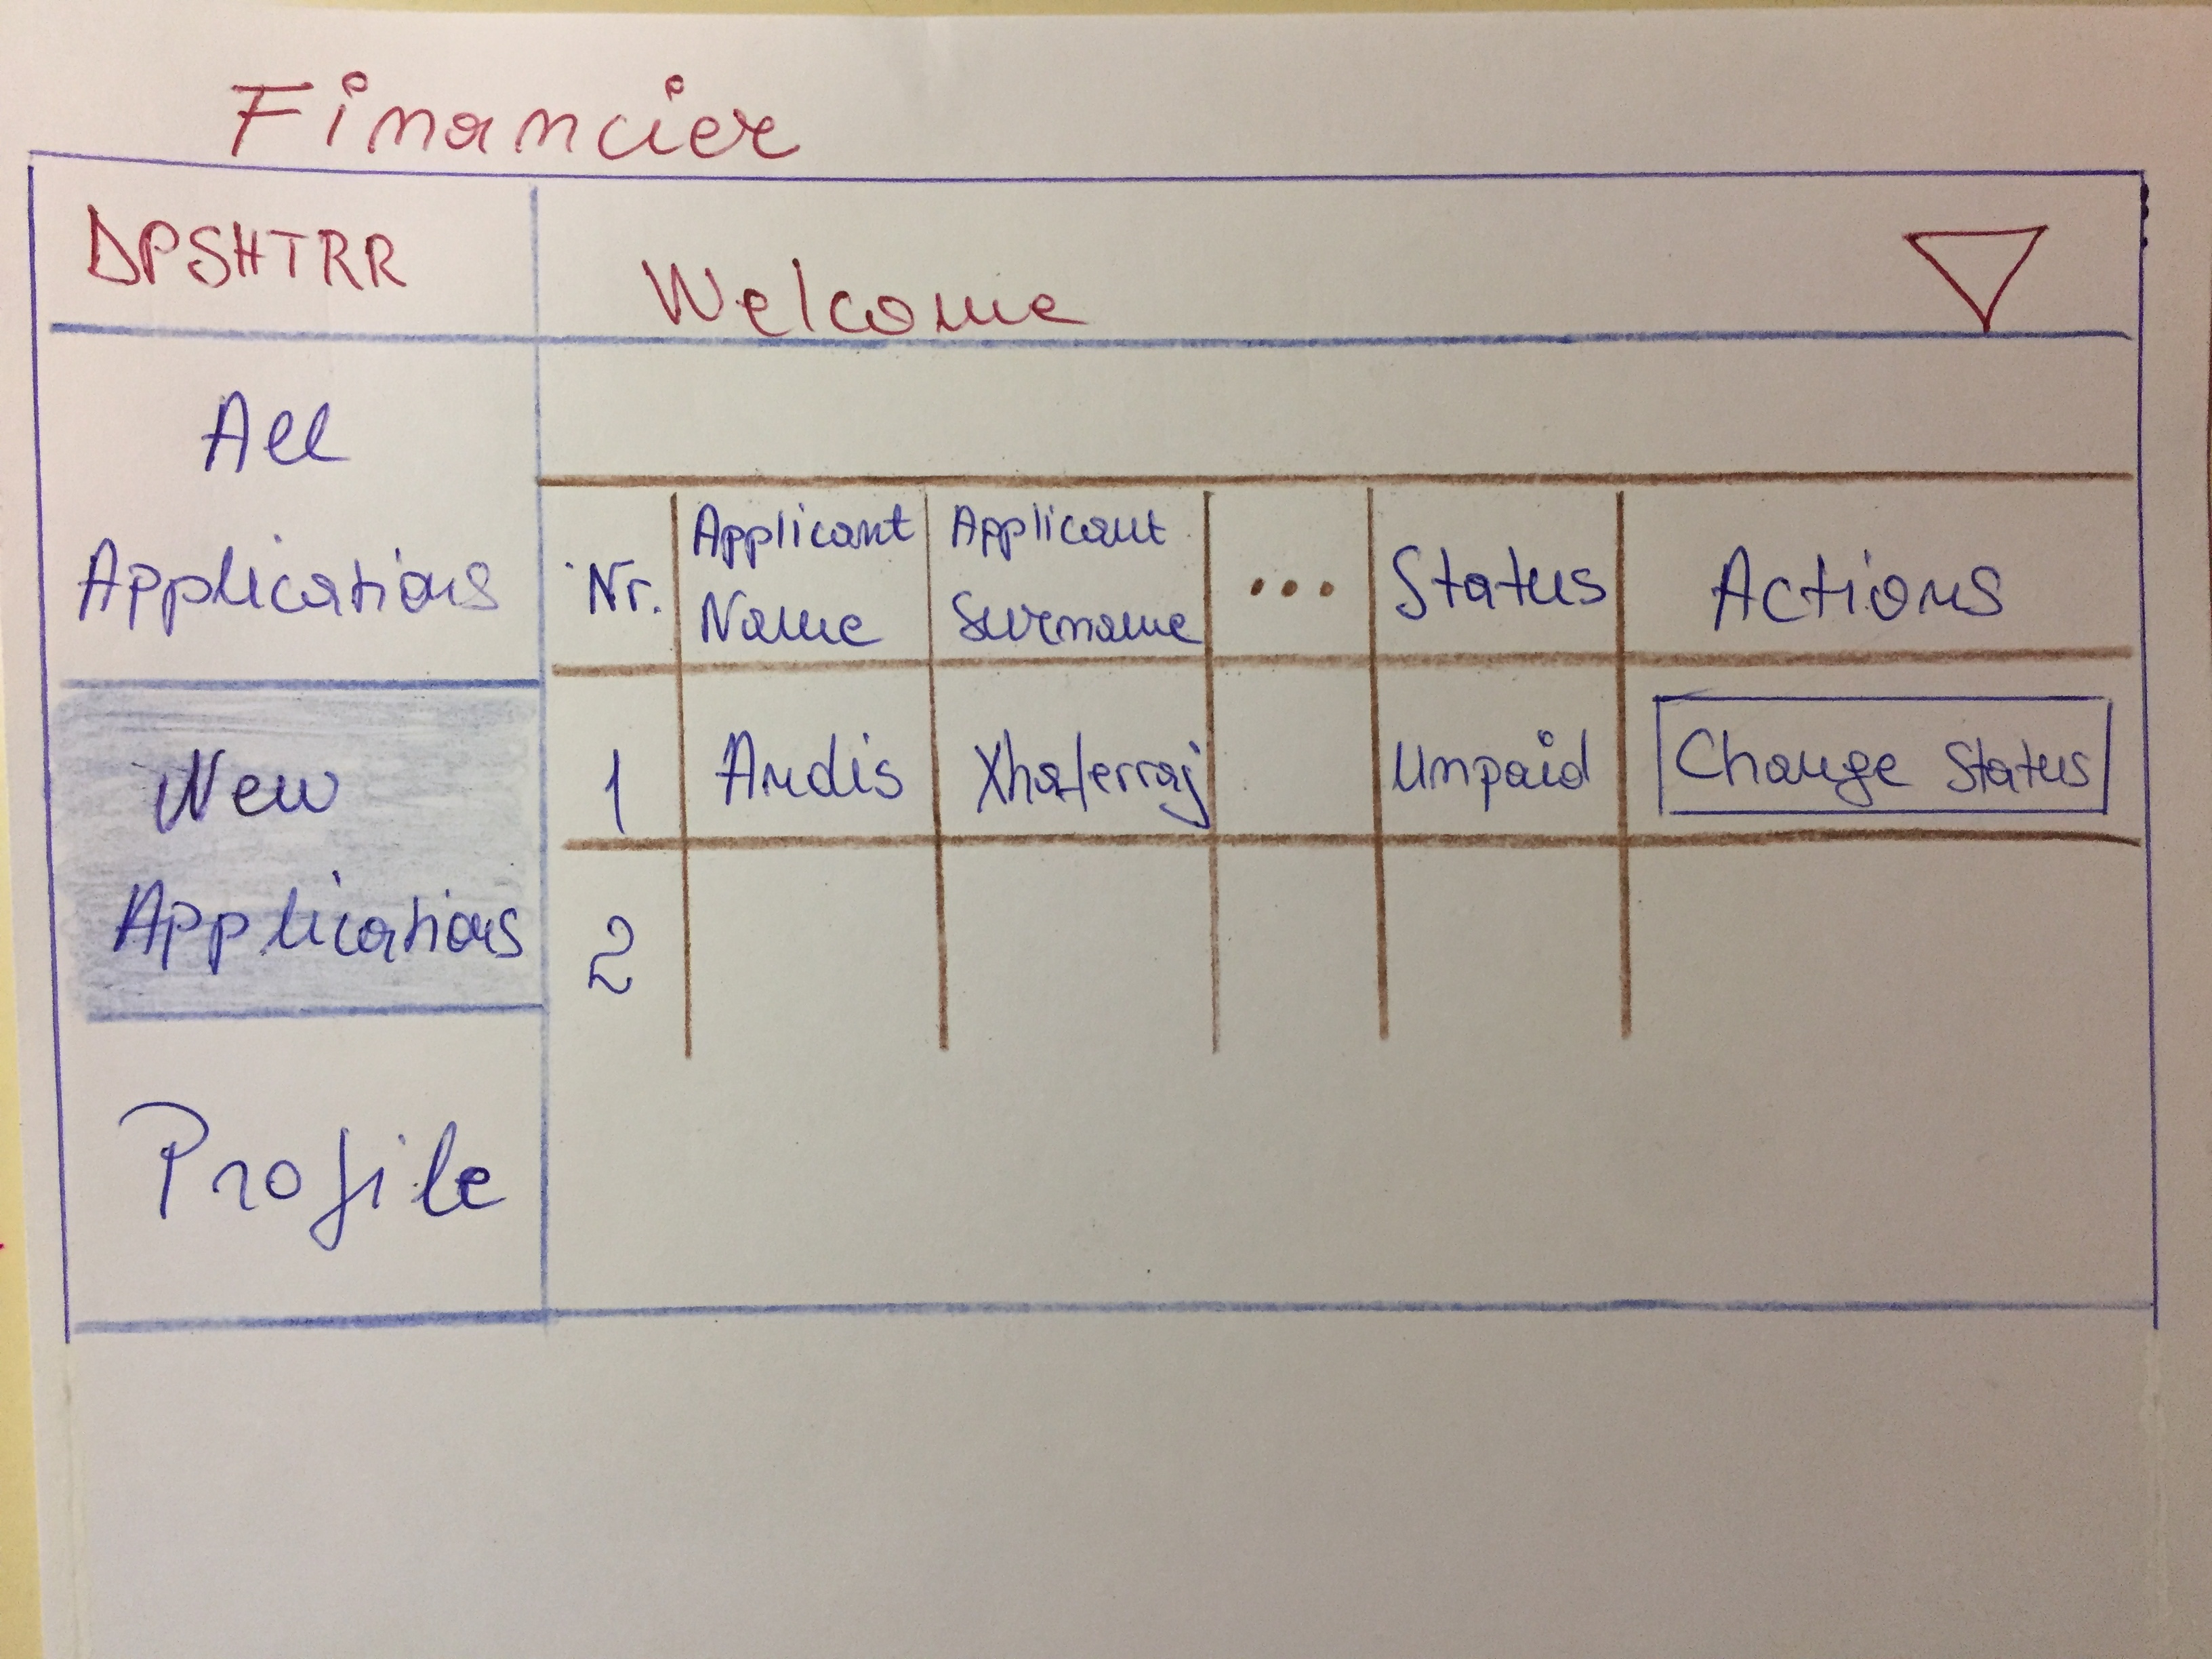 Financier
DPSHTRR
Welcome
All
Applications
New
Applications
Profile
Nr.
Applicant
Name
Applicant
Surname
...
Status
Actions
1
Andis
Xhaferraj
Unpaid
Change Status
2